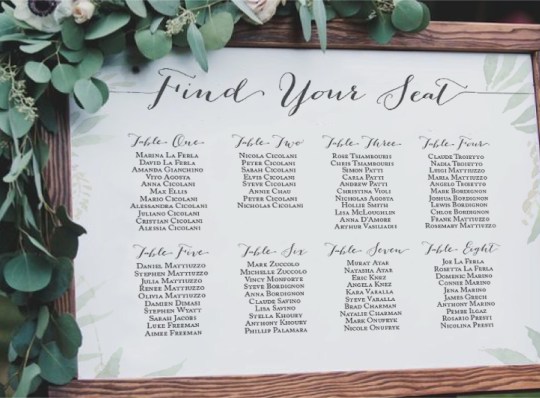 Find Your Seat
Table One
Marina La Ferla
David La Ferla
Amanda Gianchino
Vito Agosta
Anna Cicolani
Max Ellis
Mario Cicolani
Alessandra Cicolani
Juliano Cicolani
Cristian Cicolani
Alesia Cicolani
Table Two
Nicola Cicolani
Peter Cicolani
Sarah Cicolani
Elvis Cicolani
Steve Cicolani
Annie Chau
Peter Cicolani
Nicholas Cicolani
Table Three
Rose Thambouris
Chris Thambouris
Simon Patti
Carla Patti
Andrew Patti
Christina Volk
Nicholas Agosta
Hollie Smith
Lisa McLoughlin
Anna D'Amore
Arthur Vasiliadis
Table Four
Claude Troietto
Nadia Troietto
Luigi Mattiuzzo
Maria Mattiuzzo
Angelo Troietto
Mark Bordignon
Joshua Bordignon
Lewis Bordignon
Chloe Bordignon
Frank Mattiuzzo
Rosemary Mattiuzzo
Table Five
Daniel Mattiuzzo
Stephen Mattiuzzo
Julia Mattiuzzo
Renee Mattiuzzo
Olivia Mattiuzzo
Damien Dimasi
Stephen Wyatt
Sarah Jacobs
Luke Freeman
Aimee Freeman
Table Six
Mark Zuccolo
Michelle Zuccolo
Vince Monforte
Steve Bordignon
Anna Bordignon
Claude Savino
Lisa Savino
Stella Khoury
Anthony Khoury
Philip Palamara
Table Seven
Murat Ayar
Natasha Ayar
Eric Knez
Angela Knez
Kara Varalla
Steve Varalla
Brad Charman
Natalie Charman
Mark Onufryk
Nicole Onufryk
Table Eight
Joe La Ferla
Rosetta La Ferla
Domenic Marino
Connie Marino
Jena Marino
James Grech
Anthony Marino
Pembe Ilgaz
Rosario Presti
Nicolina Presti